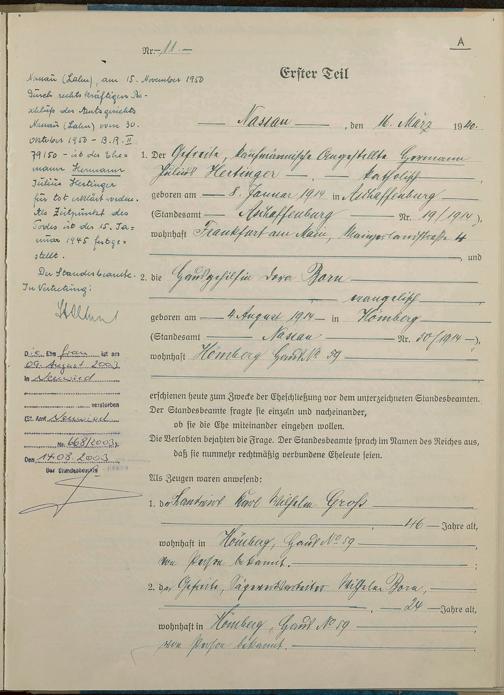 A
Nr. 11.
Erster Teil
Nassau, den 16. März 1940.
1. Der Gefreite, kaufmännische Angestellte Hermann
Julius Hertinger katholisch
geboren am 8. Januar 1914 in Aschaffenburg
(Standesamt Aschaffenburg Nr. 19/1914),
wohnhaft Frankfurt am Main, Mainzerlandstraße 4
, und
2. die Hausgehilfin Dora Born
evangelisch
geboren am 4. August 1914 in Hömberg
(Standesamt Nassau Nr. 50/1914),
wohnhaft Hömberg Haus No 59
erschienen heute zum Zwecke der Eheschließung vor dem unterzeichneten Standesbeamten.
Der Standesbeamte fragte sie einzeln und nacheinander,
ob sie die Ehe miteinander eingehen wollen.
Die Verlobten bejahten die Frage. Der Standesbeamte sprach im Namen des Reiches aus,
daß sie nunmehr rechtmäßig verbundene Eheleute seien.
Als Zeugen waren anwesend:
1. der Landwirt Karl Wilhelm Groß
, 46 Jahre alt,
wohnhaft in Hömberg, Haus No 59
von Person bekannt. ;
2. der Gefreite, Sägewerkarbeiter Wilhelm Born,
, 24 Jahre alt,
wohnhaft in Hömberg, Haus No 59
von Person bekannt.
Nassau (Lahn), am 15. November 1950
Durch rechtskräftigen Be-
schluß des Amtsgerichts
Nassau (Lahn) vom 30.
Oktober 1950 - B.R. II
79/50 - ist der Ehe-
mann Hermann
Julius Hertinger
für tot erklärt worden.
Als Zeitpunkt des
Todes ist der 15. Ja-
nuar 1945 festge-
stellt.
Der Standesbeamte
In Vertretung:
Die Ehefrau ist am
09. August 2003
in Neuwied
verstorben
St. Amt Neuwied
Nr. 668/2003
Den 14.08.2003
Der Standesbeamte